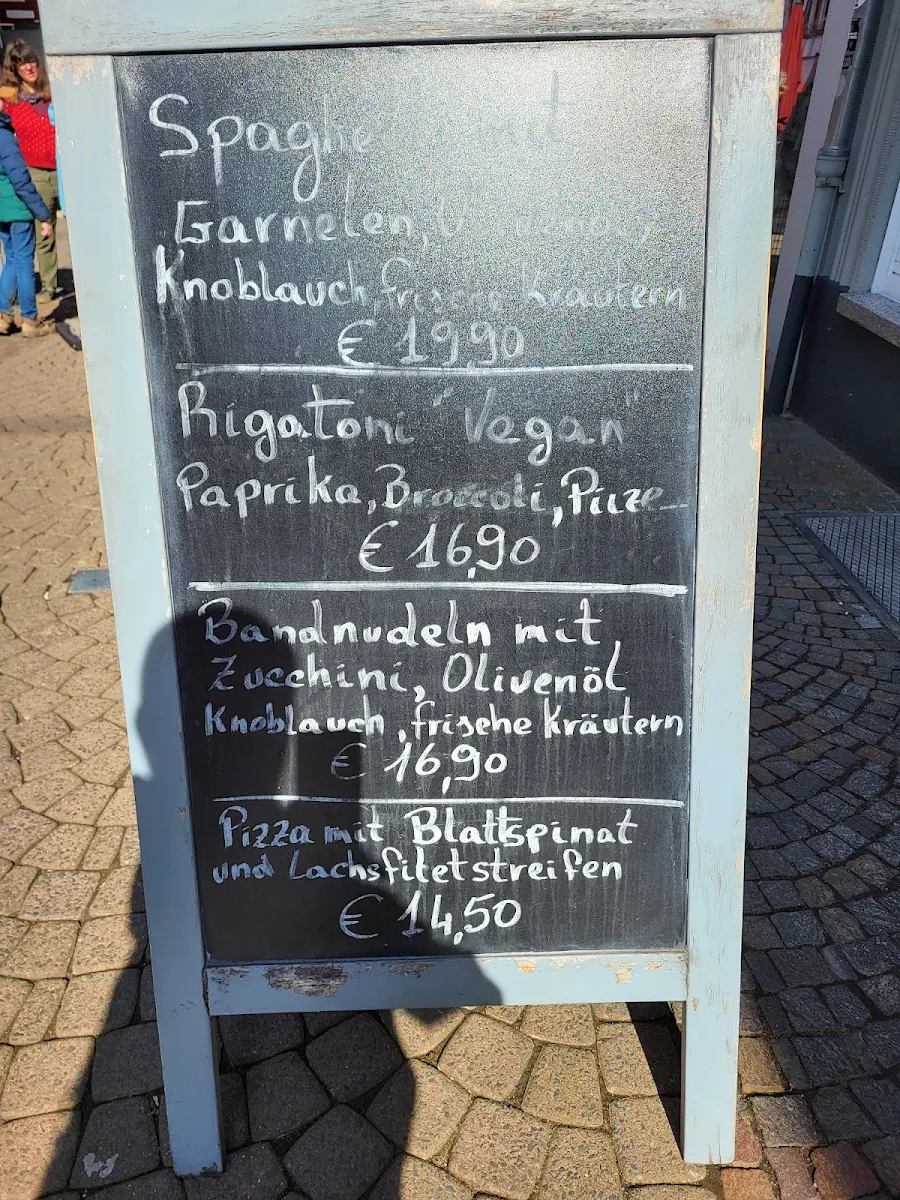 Spaghe mit
Garnelen,
Knoblauch, frische Kräutern
€ 19,90
Rigatoni "Vegan"
Paprika, Broccoli, Pilze
€ 16,90
Bandnudeln mit
Zucchini, Olivenöl
Knoblauch, frische Kräutern
€ 16,90
Pizza mit Blattspinat
und Lachsfiletstreifen
€ 14,50